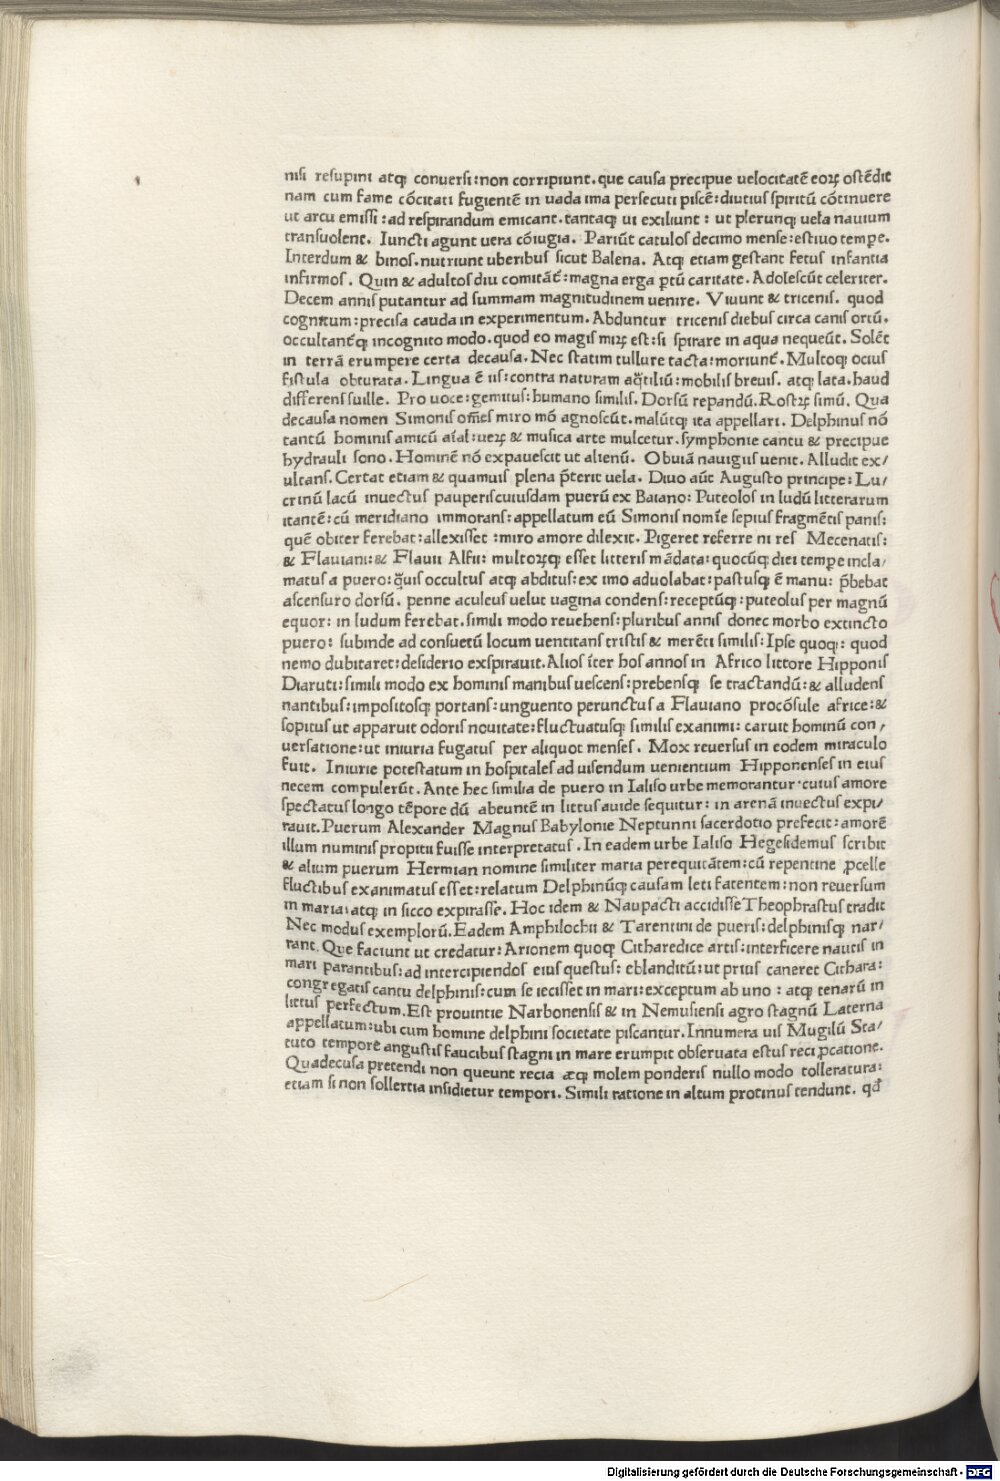 nisi resupini atqꝫ conuersi:non corripiunt.que causa precipue uelocitatē eoꝝ ostēdit
nam cum fame cōcitati fugientē in uada ima persecuti piscē:diutius spiritū cōtinuere
ut arcu emissi:ad respirandum emicant.tantaqꝫ ui exiliunt: ut plerunqꝫ uela nauium
transuolent. Iuncti agunt uera cōiugia. Pariūt catulos decimo mense:estiuo tempe.
Interdum & binos.nutriunt uberibus sicut Balena. Atqꝫ etiam gestant fetus infantia
infirmos. Quin & adultos diu comitāt:magna erga ꝑtū caritate.Adolescūt celeriter.
Decem annis putantur ad summam magnitudinem uenire. Viuunt & tricenis. quod
cognitum:precisa cauda in experimentum.Abduntur tricenis diebus circa canis ortū.
occultantqꝫ incognito modo.quod eo magis miꝝ est:si spirare in aqua nequeūt. Solēt
in terrā erumpere certa decausa.Nec statim tullure tacta:moriunt. Multoqꝫ ocius
fistula obturata.Lingua ē iis:contra naturam aq̄tiliū:mobilis breuis. atqꝫ lata.haud
differens suille. Pro uoce:gemitus:humano similis.Dorsū repandū.Rostꝝ simū. Qua
decausa nomen Simonis om̄es miro mō agnoscūt.malūtqꝫ ita appellari. Delphinus nō
tantū hominis amicū aīal:ueꝝ & musica arte mulcetur.symphonie cantu & precipue
hydrauli sono.Hominē nō expauescit ut alienū. Obuiā nauigiis uenit.Alludit ex/
ultans.Certat etiam & quamuis plena p̄terit uela. Diuo aūt Augusto principe:Lu/
crinū lacū inuectus pauperis cuiusdam puerū ex Baiano:Puteolos in ludū litterarum
itantē:cū meridiano immorans:appellatum eū Simonis nomīe sepius fragmētis panis:
quē obiter ferebat:allexisset :miro amore dilexit. Pigeret referre ni res Mecenatis:
& Flauiani:& Flauii Alfii: multoꝝqꝫ esset litteris mādata:quocūqꝫ diei tempe incla/
matus a puero:q̄uis occultus atqꝫ abditus:ex imo aduolabat:pastusqꝫ ē manu: p̄bebat
ascensuro dorsū. penne aculeus uelut uagina condens:receptūqꝫ:puteolus per magnū
equor: in ludum ferebat.simili modo reuehens:pluribus annis donec morbo extincto
puero: subinde ad consuetū locum uentitans tristis & merēti similis:Ipse quoqꝫ: quod
nemo dubitaret:desiderio exspirauit.Alios īter hos annos in Africo littore Hipponis
Diaruti:simili modo ex hominis manibus uescens:prebensqꝫ se tractandū:& alludens
nantibus:impositosqꝫ portans:unguento perunctus a Flauiano procōsule africe:&
sopitus ut apparuit odoris nouitate:fluctuatusqꝫ similis exanimi: caruit hominū con/
uersatione:ut iniuria fugatus per aliquot menses. Mox reuersus in eodem miraculo
fuit. Iniurie potestatum in hospitales ad uisendum uenientium Hipponenses in eius
necem compulerūt.Ante hec similia de puero in Ialiso urbe memorantur·cuius amore
spectatus longo tēpore dū abeuntē in littus auide sequitur: in arenā inuectus expi/
rauit.Puerum Alexander Magnus Babylonie Neptunni sacerdotio prefecit:amorē
illum numinis propitii fuisse interpretatus. In eadem urbe Ialiso Hegesidemus scribit
& alium puerum Hermian nomine similiter maria perequitātem:cū repentine ꝓcelle
fluctibus exanimatus esset:relatum Delphinūqꝫ causam leti fatentem:non reuersum
in maria:atqꝫ in sicco expirasse.Hoc idem & Naupacti accidisse Theophrastus tradit
Nec modus exemplorū.Eadem Amphilochii & Tarentini de pueris:delphinisqꝫ nar/
rant. Que faciunt ut credatur:Arionem quoqꝫ Citharedice artis:interficere nautis in
mari parantibus:ad intercipiendos eius questus: eblanditū:ut prius caneret Cithara:
congregatis cantu delphinis:cum se iecisset in mari:exceptum ab uno : atqꝫ tenarū in
littus perfectum.Est prouintie Narbonensis & in Nemusiensi agro stagnū Laterna
appellatum:ubi cum homine delphini societate piscantur.Innumera uis Mugilū Sta/
tuto temporē angustis faucibus stagni in mare erumpit obseruata estus reciꝓcatione.
Quadecusa pretendi non queunt recia æqꝫ molem ponderis nullo modo tolleratura:
etiam si non sollertia insidietur tempori. Simili ratione in altum protinus tendunt. qđ
Digitalisierung gefördert durch die Deutsche Forschungsgemeinschaft - DFG